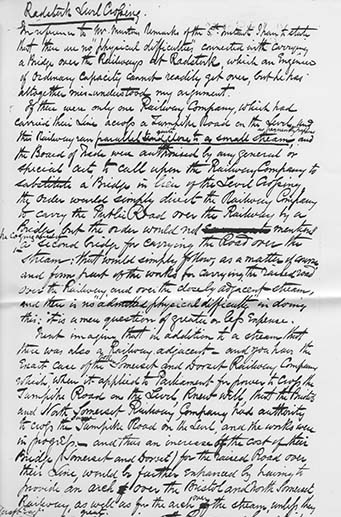 Radstock Level Crossing.
In reference to Mr. Remarks of the 5th instant I have to state
that there are no "physical difficulties" connected with carrying
a Bridge over the Railways at Radstock, which an Engineer
of Ordinary Capacity cannot readily get over, but he has
altogether misunderstood my argument.
If there were only one Railway Company, which had
carried their Line across a Turnpike Road on the Level, and
the Railway ran parallel and close to a small stream, and
the Board of Trade were authorised by any general or
special act, to call upon the Railway Company to
substitute a Bridge in lieu of the Level Crossing
the order would simply direct the Railway Company
to carry the Public Road over the Railway by a
Bridge, but the order would not mention
a second bridge for carrying the Road over the
stream; that would simply follow as a matter of course
and form part of the works for carrying the raised road
over the Railway, and over the closely adjacent stream,
and there is no admitted physical difficulty in doing
this; it is a mere question of greater or less Expense.
Next imagine that in addition to a stream, that
there was also a Railway adjacent - and you have the
Exact case of the Somerset and Dorset Railway Company
which when it applied to Parliament for power to cross the
Turnpike Road on the Level knew well, that the Bristol
and North Somerset Railway Company had authority
to cross the Turnpike Road on the Level and the works were
in progress - and thus an increase of the cost of their
Bridge (Somerset and Dorset) for the raised Road over
their Line, would be further enhanced by having to
provide an arch over the Bristol and North Somerset
Railway, as well as for the arch over the stream, unless they